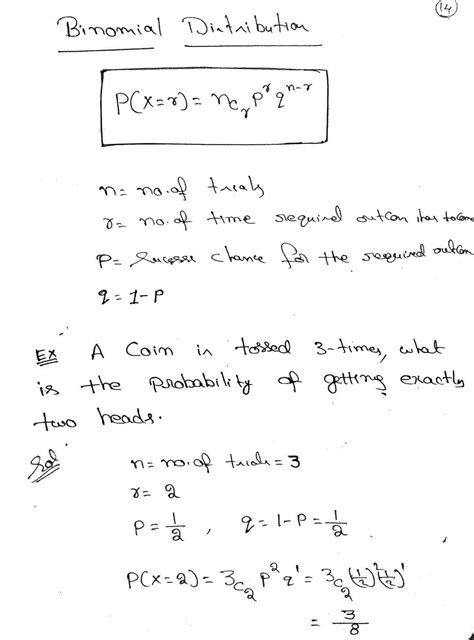 14
Binomial Distribution
P(X=r) = nCr p^r q^(n-r)
n = no. of trials
r = no. of time required outcom has to come
P = Success chance for the required outcom
q = 1-P
Ex A Coin is tossed 3-times, what
is the probability of getting exactly
two heads.
Sol n = no. of trials = 3
r = 2
P = 1/2 , q = 1-P = 1/2
P(X=2) = 3C2 p^2 q^1 = 3C2 (1/2)^2 (1/2)^1
= 3/8